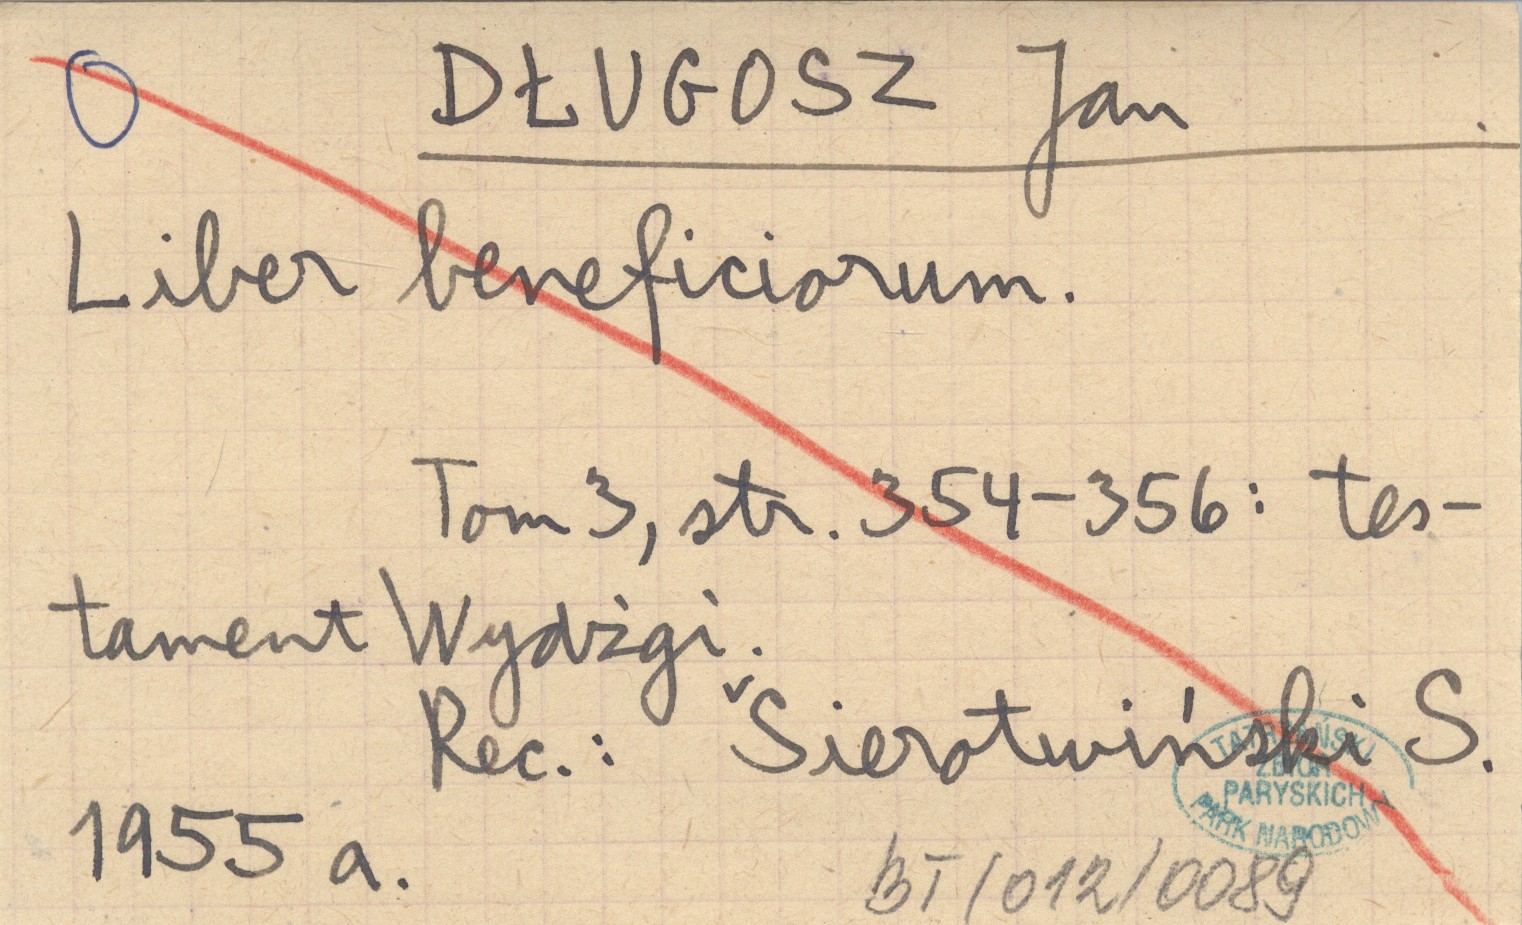 DŁUGOSZ Jan
Liber beneficiorum.
Tom 3, str. 354-356: tes-
tament Wydżgi.
Rec.: Sierotwiński S.
1955 a.
TATRZAŃSKI
ZBIÓR
PARYSKICH
PARK NARODOWY
BT/012/0089